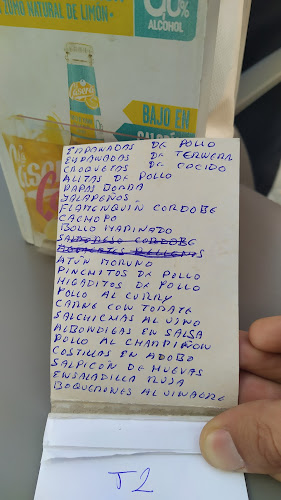 ZUMO NATURAL DE LIMÓN*
ALCOHOL
BAJO EN
EMPANADAS DE POLLO
EMPANADAS DE TERNERA
CROQUETAS DE COCIDO
ALITAS DE POLLO
PAPAS BOMBA
JALAPEÑOS
FLAMENQUIN CORDOBE
CACHOPO
BOLLO MARINADO
SALMOREJO CORDOBE
ATÚN MORUNO
PINCHITOS DE POLLO
HIGADITOS DE POLLO
POLLO AL CURRY
CARNE CON TOMATE
SALCHICHAS AL VINO
ALBONDIGAS EN SALSA
POLLO AL CHAMPIÑON
COSTILLAS EN ADOBO
SALPICÓN DE HUEVAS
ENSALADILLA RUSA
BOQUERONES AL VINAGRE
T2